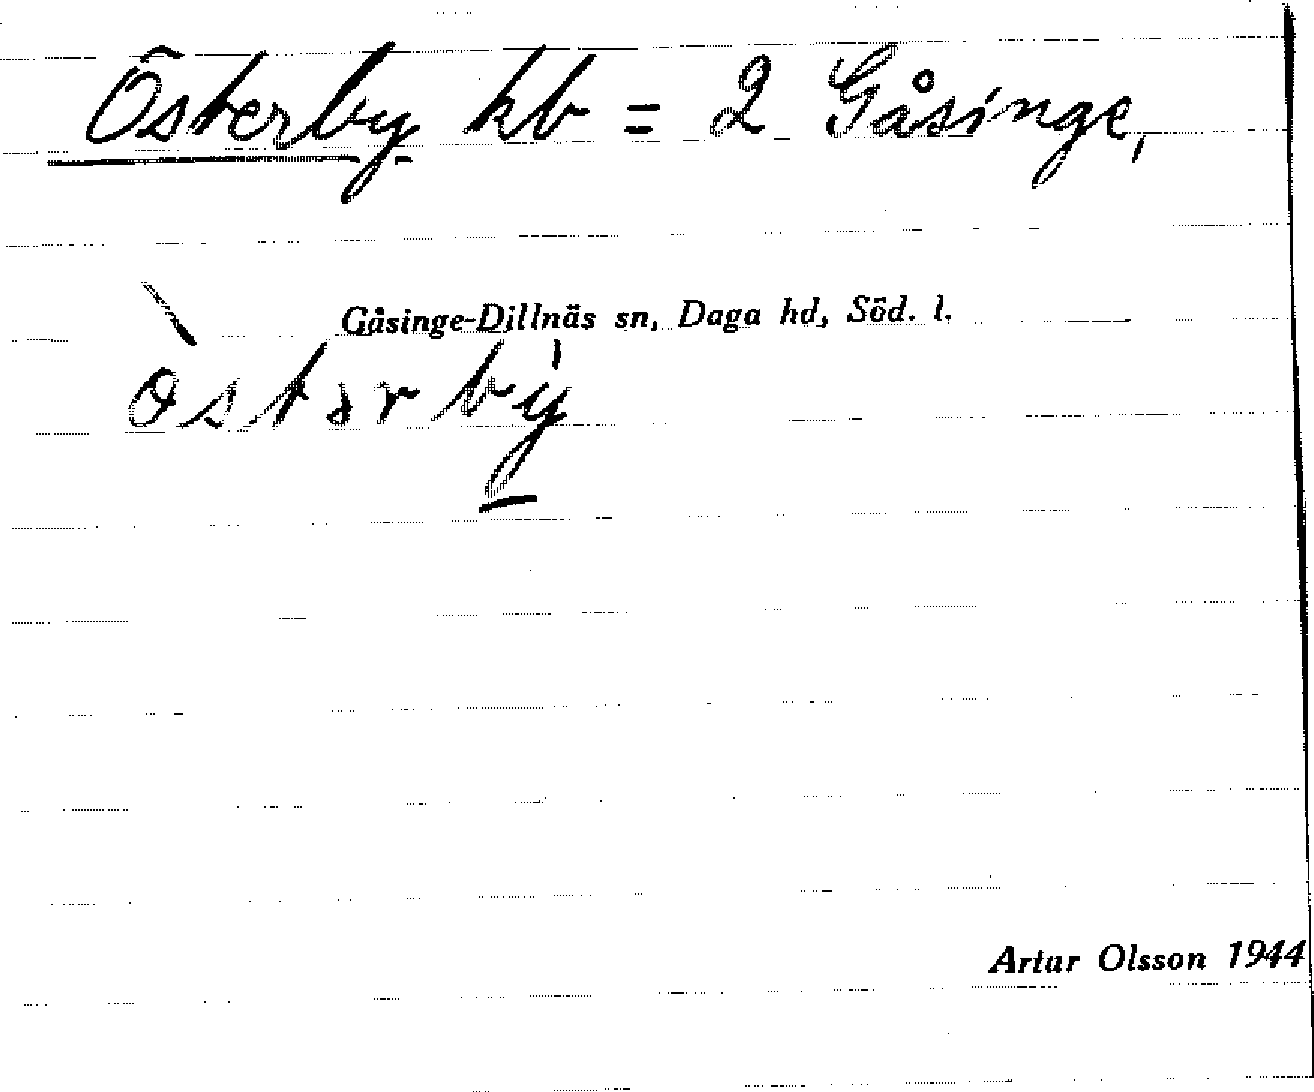 Österby kb = 2 Gåsinge,
Gåsinge-Dillnäs sn, Daga hd, Söd. l.
òstərbý
Artur Olsson 1944